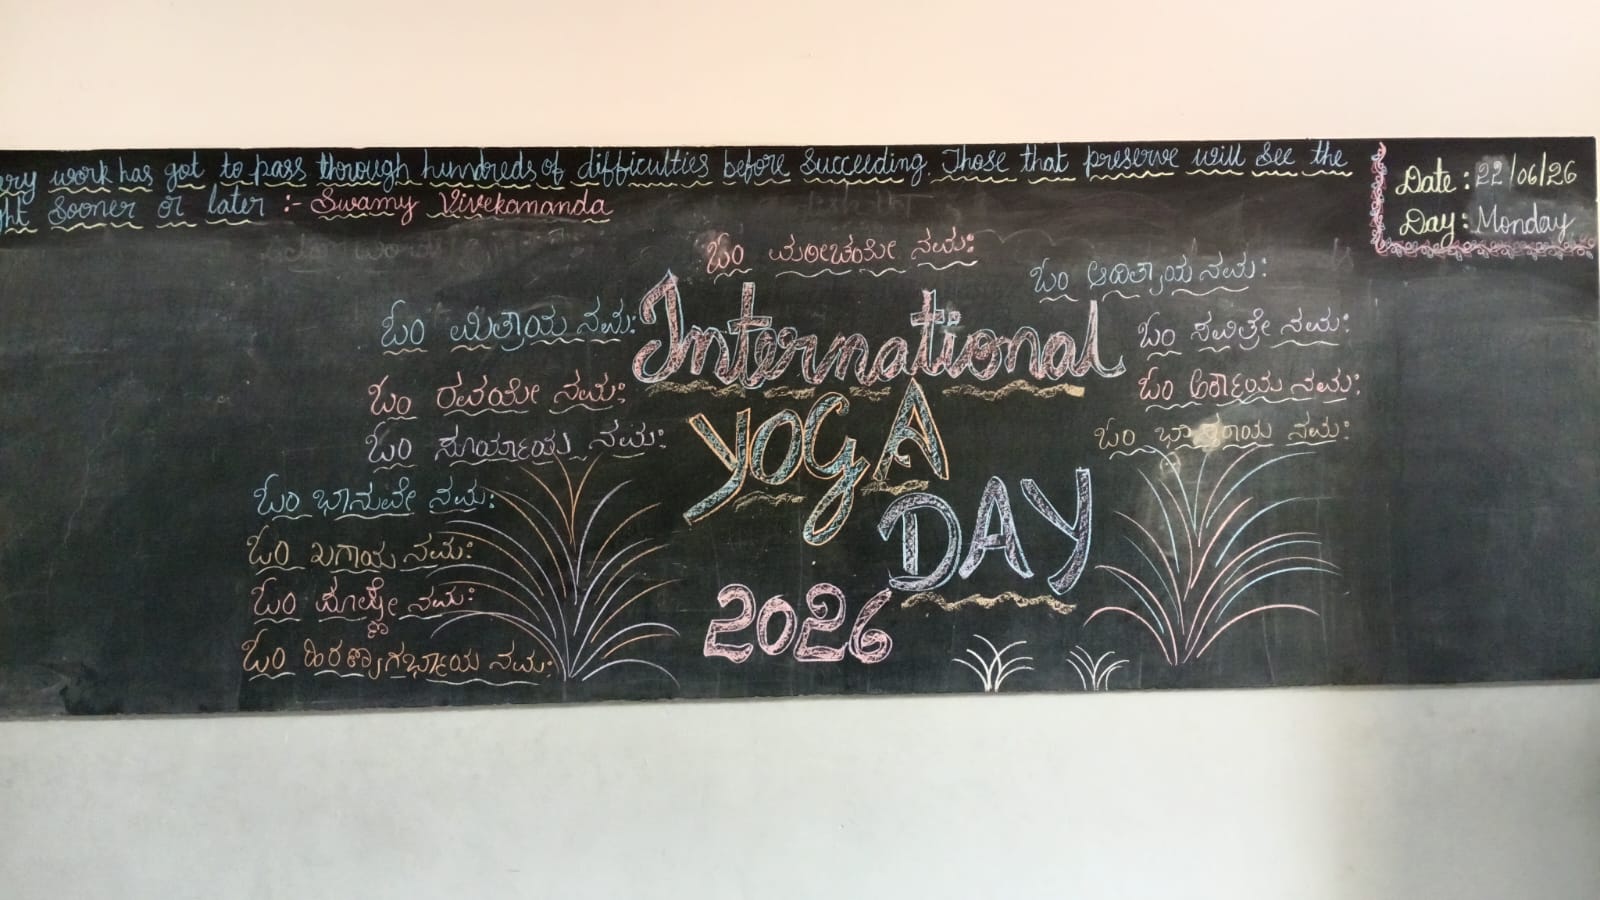 ery work has got to pass through hundreds of difficulties before succeeding. Those that preserve will see the
ght sooner or later :- Swamy Vivekananda
Date : 22/06/26
Day : Monday
ಓಂ ಮರೀಚಯೇ ನಮಃ
ಓಂ ಆದಿತ್ಯಾಯ ನಮಃ
ಓಂ ಮಿತ್ರಾಯ ನಮಃ
ಓಂ ಸವಿತ್ರೇ ನಮಃ
International
ಓಂ ರವಯೇ ನಮಃ
ಓಂ ಅರ್ಕಾಯ ನಮಃ
YOGA
ಓಂ ಸೂರ್ಯಾಯ ನಮಃ
ಓಂ ಭಾಸ್ಕರಾಯ ನಮಃ
ಓಂ ಭಾನುವೇ ನಮಃ
DAY
ಓಂ ಖಗಾಯ ನಮಃ
ಓಂ ನಮಃ
2026
ಓಂ ಹಿರಣ್ಯಾಗರ್ಭಾಯ ನಮಃ